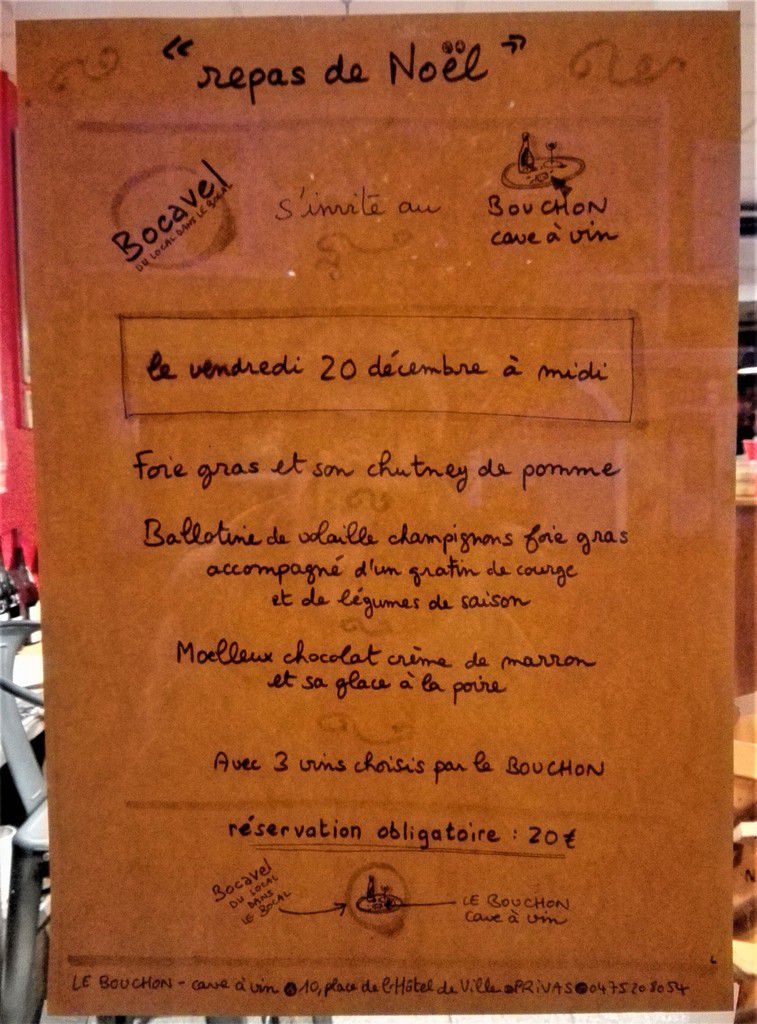 " repas de Noël "
Bocavel
DU LOCAL DANS LE BOCAL
s'invite au
BOUCHON
cave à vin
le vendredi 20 décembre à midi
Foie gras et son chutney de pomme
Ballotine de volaille champignons foie gras
accompagné d'un gratin de courge
et de légumes de saison
Moelleux chocolat crème de marron
et sa glace à la poire
Avec 3 vins choisis par le BOUCHON
réservation obligatoire : 20€
Bocavel
DU LOCAL
DANS
LE BOCAL
LE BOUCHON
cave à vin
LE BOUCHON - cave à vin 10, place de l'Hôtel de Ville PRIVAS 0475208054